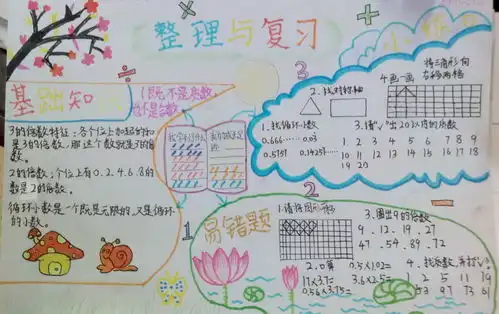 整理与复习
小练习
基础知识
1既不是质数,
也不是合数。
3的倍数特征:各个位上加起来的和
是3的倍数,那这个数就是3的倍
数。
2的倍数:个位上有0、2、4、6、8的
数是2的倍数。
循环小数是一个既是无限的,又是循环
的小数。
1
2
3
1.找循环小数
0.666…… 0.03
2.找对称轴
3.请"√"出20以内的质数
1 2 3 4 5 6 7 8 9
10 11 12 13 14 15 16 17 18
19 20
4.画一画
将三角形向
右移两格
易错题
2.口算
0.5×1.02=
17×3.7=
3.6×2.5=
0.56×3.75=
3.圈出9的倍数
9、13、19、27
47、54、89、72
4.找质数,并打"√"
1 2 5 11 14
53 97 73 61